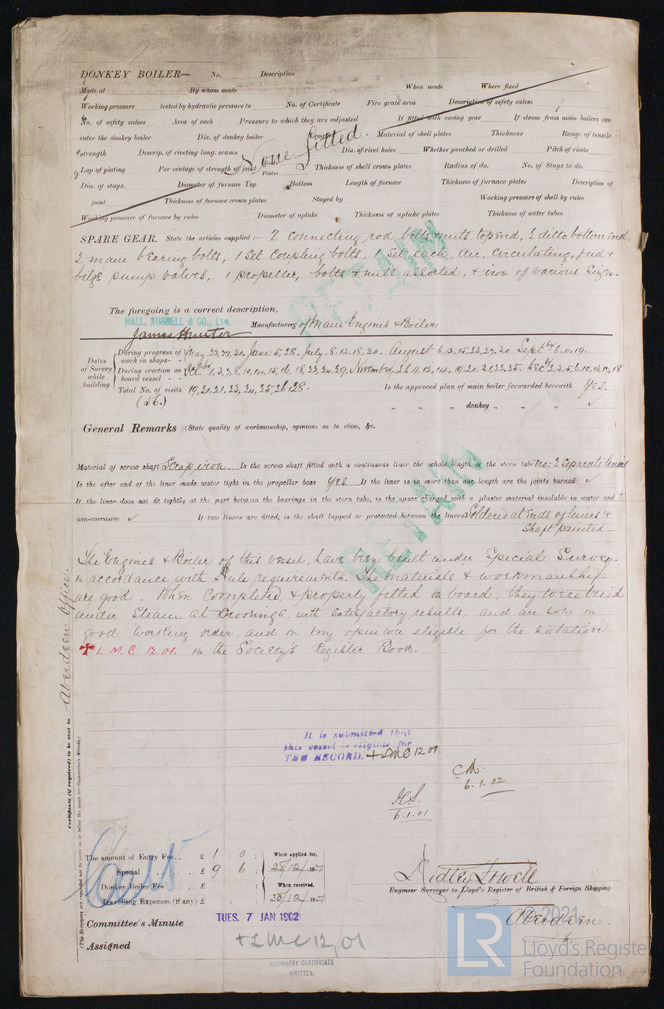 DONKEY BOILER— No. Description
Made at By whom made When made Where fixed
Working pressure tested by hydraulic pressure to No. of Certificate Fire grate area Description of safety valves
No. of safety valves Area of each Pressure to which they are adjusted If fitted with easing gear If steam from main boilers can
enter the donkey boiler Dia. of donkey boiler Length Material of shell plates Thickness Range of tensile
strength Descrip. of riveting long. seams Dia. of rivet holes Whether punched or drilled Pitch of rivets
None fitted.
Lap of plating Per centage of strength of joint Plates Thickness of shell crown plates Radius of do. No. of Stays to do.
Dia. of stays. Diameter of furnace Top Bottom Length of furnace Thickness of furnace plates Description of
joint Thickness of furnace crown plates Stayed by Working pressure of shell by rules
Working pressure of furnace by rules Diameter of uptake Thickness of uptake plates Thickness of water tubes
SPARE GEAR. State the articles supplied:— 2 connecting rod bolts & nuts top end, 2 ditto bottom end,
2 main bearing bolts, 1 set coupling bolts, 1 set each, air, circulating, feed &
bilge pump valves, 1 propeller, bolts & nuts assorted, & iron of various sizes.
RETAIN
The foregoing is a correct description,
HALL, RUSSELL & CO., Ltd. Manufacturers of Main Engines & Boiler
James Hunter
Dates of Survey while building
During progress of work in shops - - May, 22, 27, 30, June 5, 28, July 8, 12, 18, 30. August 6, 13, 15, 23, 27, 30 Sept 6, 11, 19.
During erection on board vessel - - Oct 1, 3, 7, 8, 10, 14, 15, 16, 18, 23, 24, 29, Novembr 2, 6, 9, 13, 14, 19, 20, 21, 22, 25. Dec 2, 3, 5, 6, 10, 12, 17, 18
Total No. of visits 19, 20, 21, 23, 24, 25, 26, 28. Is the approved plan of main boiler forwarded herewith Yes.
(56.) " " " donkey " "
General Remarks (State quality of workmanship, opinions as to class, &c.
Material of screw shaft Scrap iron. Is the screw shaft fitted with a continuous liner the whole length of the stern tube no: 2 separate liners
Is the after end of the liner made water tight in the propeller boss Yes If the liner is in more than one length are the joints burned ✓
If the liner does not fit tightly at the part between the bearings in the stern tube, is the space charged with a plastic material insoluble in water and
non-corrosive ✓ If two liners are fitted, is the shaft lapped or protected between the liners Soldered at Ends of liners &
Shaft painted—
RETAIN
The Engines & Boiler of this vessel, have been built under Special Survey
in accordance with Rule requirements. The materials & workmanship
are good. When completed & properly fitted on board, they were tried
under Steam at moorings with satisfactory results, and are now in
good working order, and in my opinion eligible for the notation
✠ L.M.C 12.01. in the Society's Register Book.
Certificate (if required) to be sent to Aberdeen Office.
It is submitted that
this vessel is eligible for
THE RECORD. +LMC 12 01
6.1.02
6.1.01
The amount of Entry Fee. . £ 1 : 0 : When applied for,
Special . . £ 9 : 6 : 28/12/1901
Donkey Boiler Fee . . £ : : When received,
Travelling Expenses (if any) £ : : 30/12/1901
Ridley Howell
Engineer Surveyor to Lloyd's Register of British & Foreign Shipping
Aberdeen.
Committee's Minute TUES. 7 JAN 1902
Assigned + LMC 12,01
MACHINERY CERTIFICATE
WRITTEN.
2021
LR
Lloyd's Register
Foundation